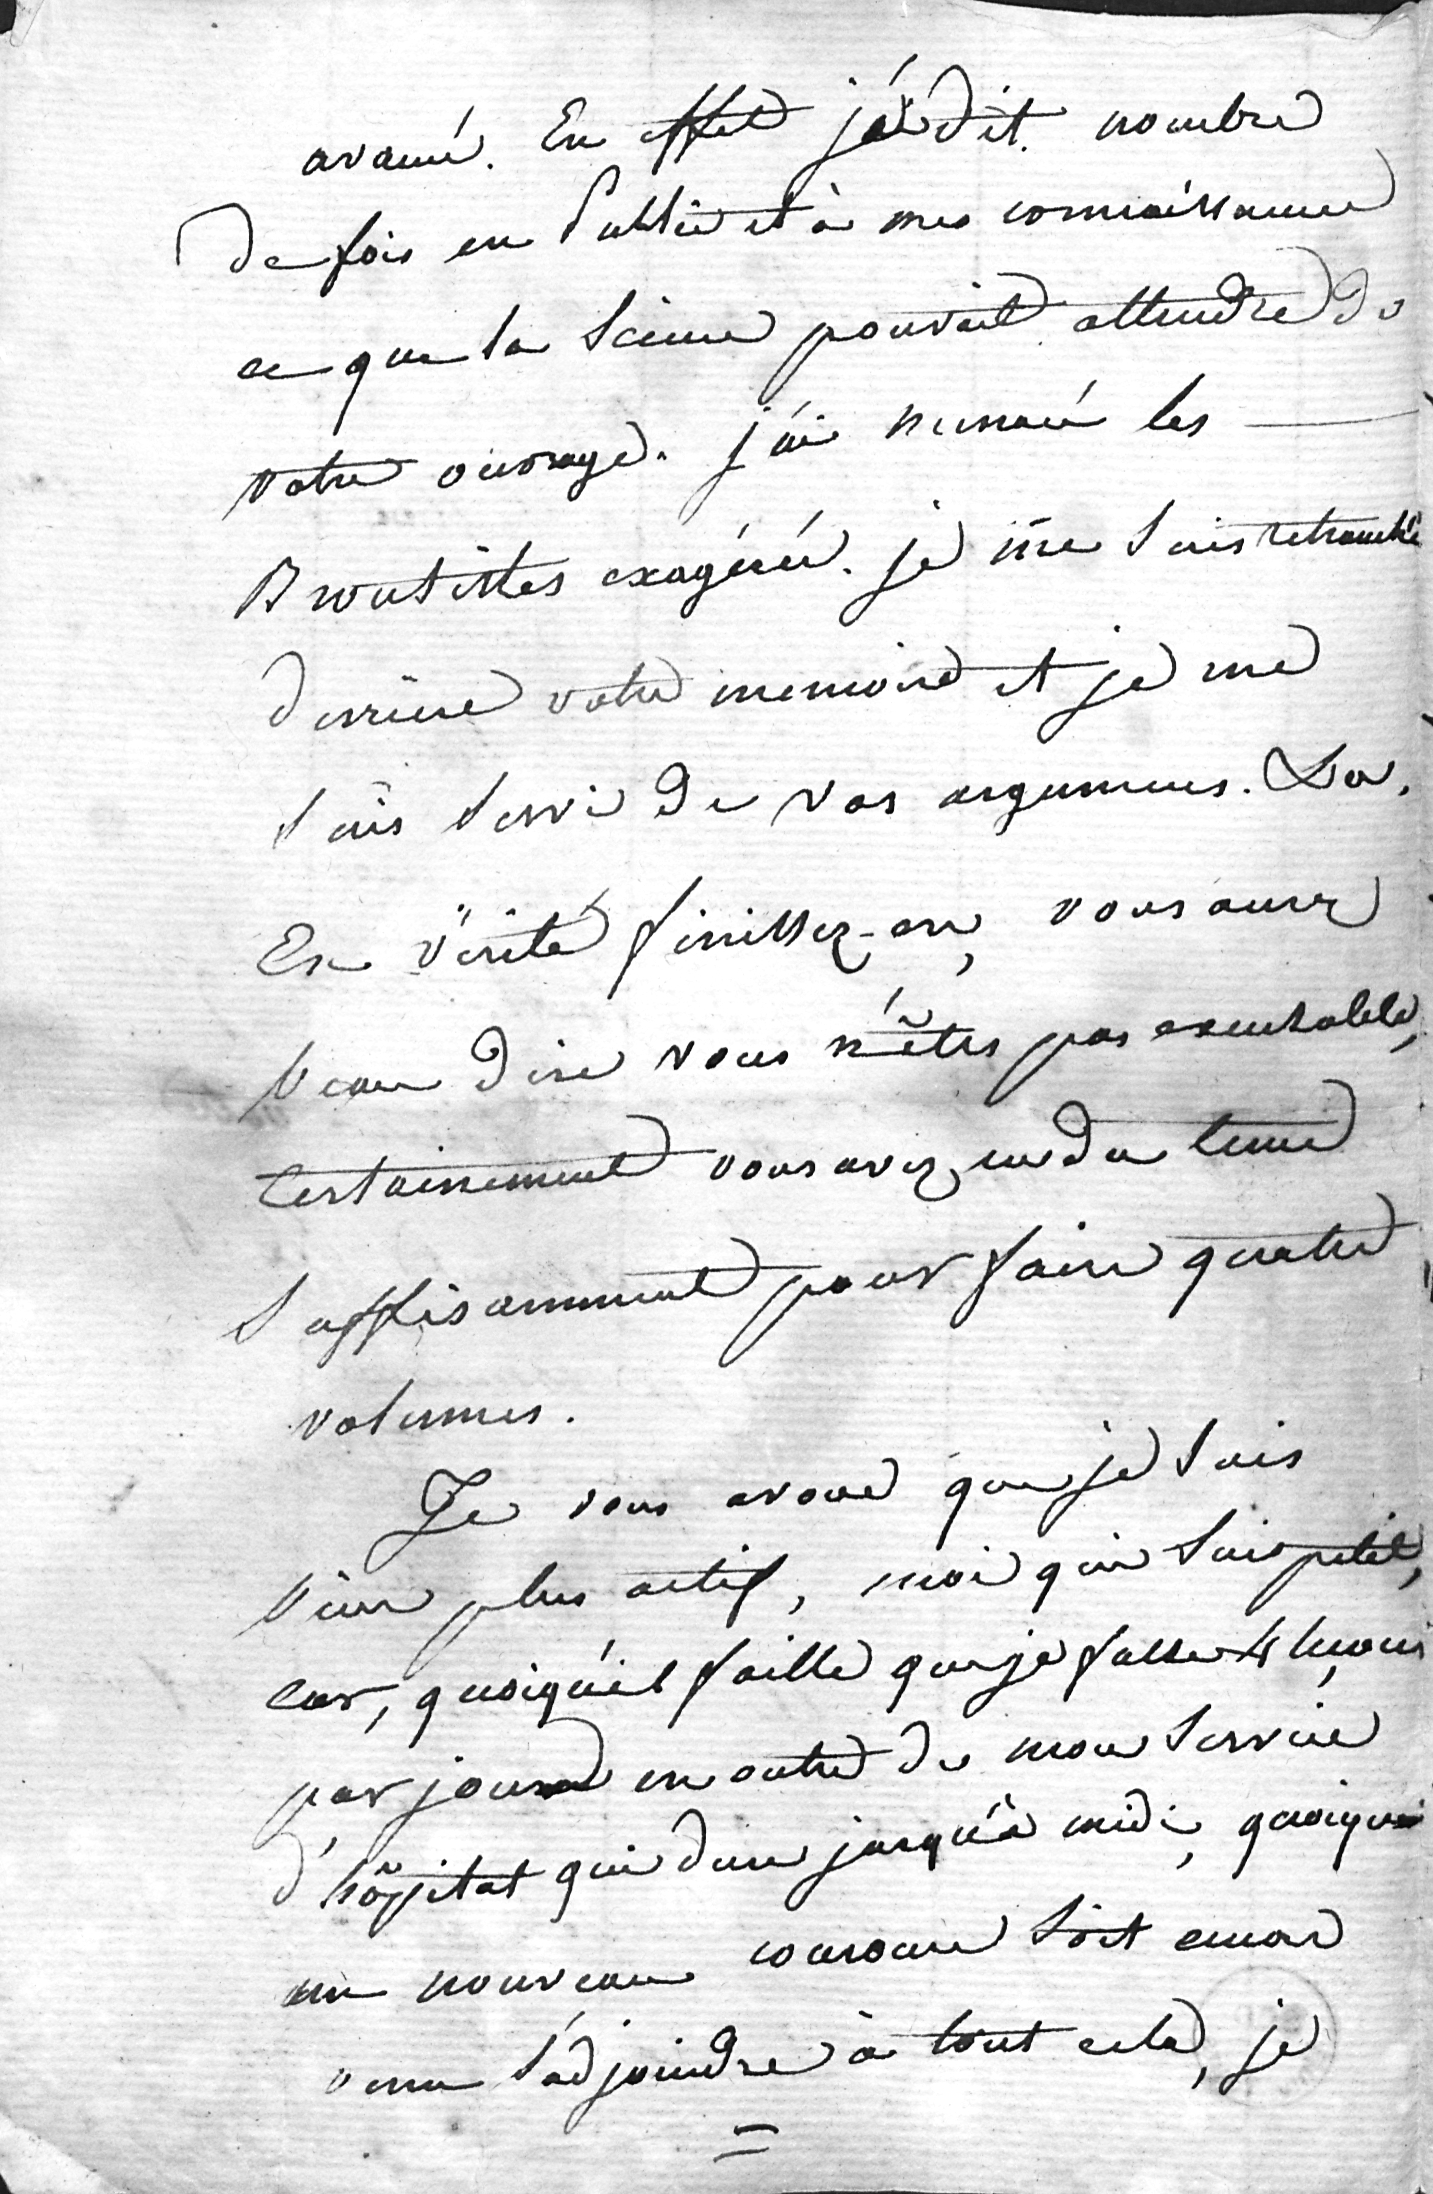 avancé. En effet j'ai dit nombre
de fois en Public et à mes connaissances
ce que la Science pouvait attendre de
votre ouvrage. j'ai menacé les
Brousistes exagérés. je me suis retranché
derrière votre memoire et je me
suis servi de vos argumens.
En vérité finissez-en, vous aurez
beau dire vous n'êtes pas excusable,
certainement vous avez eu du tems
suffisamment pour faire quatre
volumes.
Je vous avoue que je suis
bien plus actif, moi qui suis petit,
car, quoiqu'il faille que je fasse 4 leçons
par jour en outre de mon service
d'hôpital qui dure jusqu'à midi, quoique
un nouveau concours soit encore
venu s'adjoindre à tout cela, je